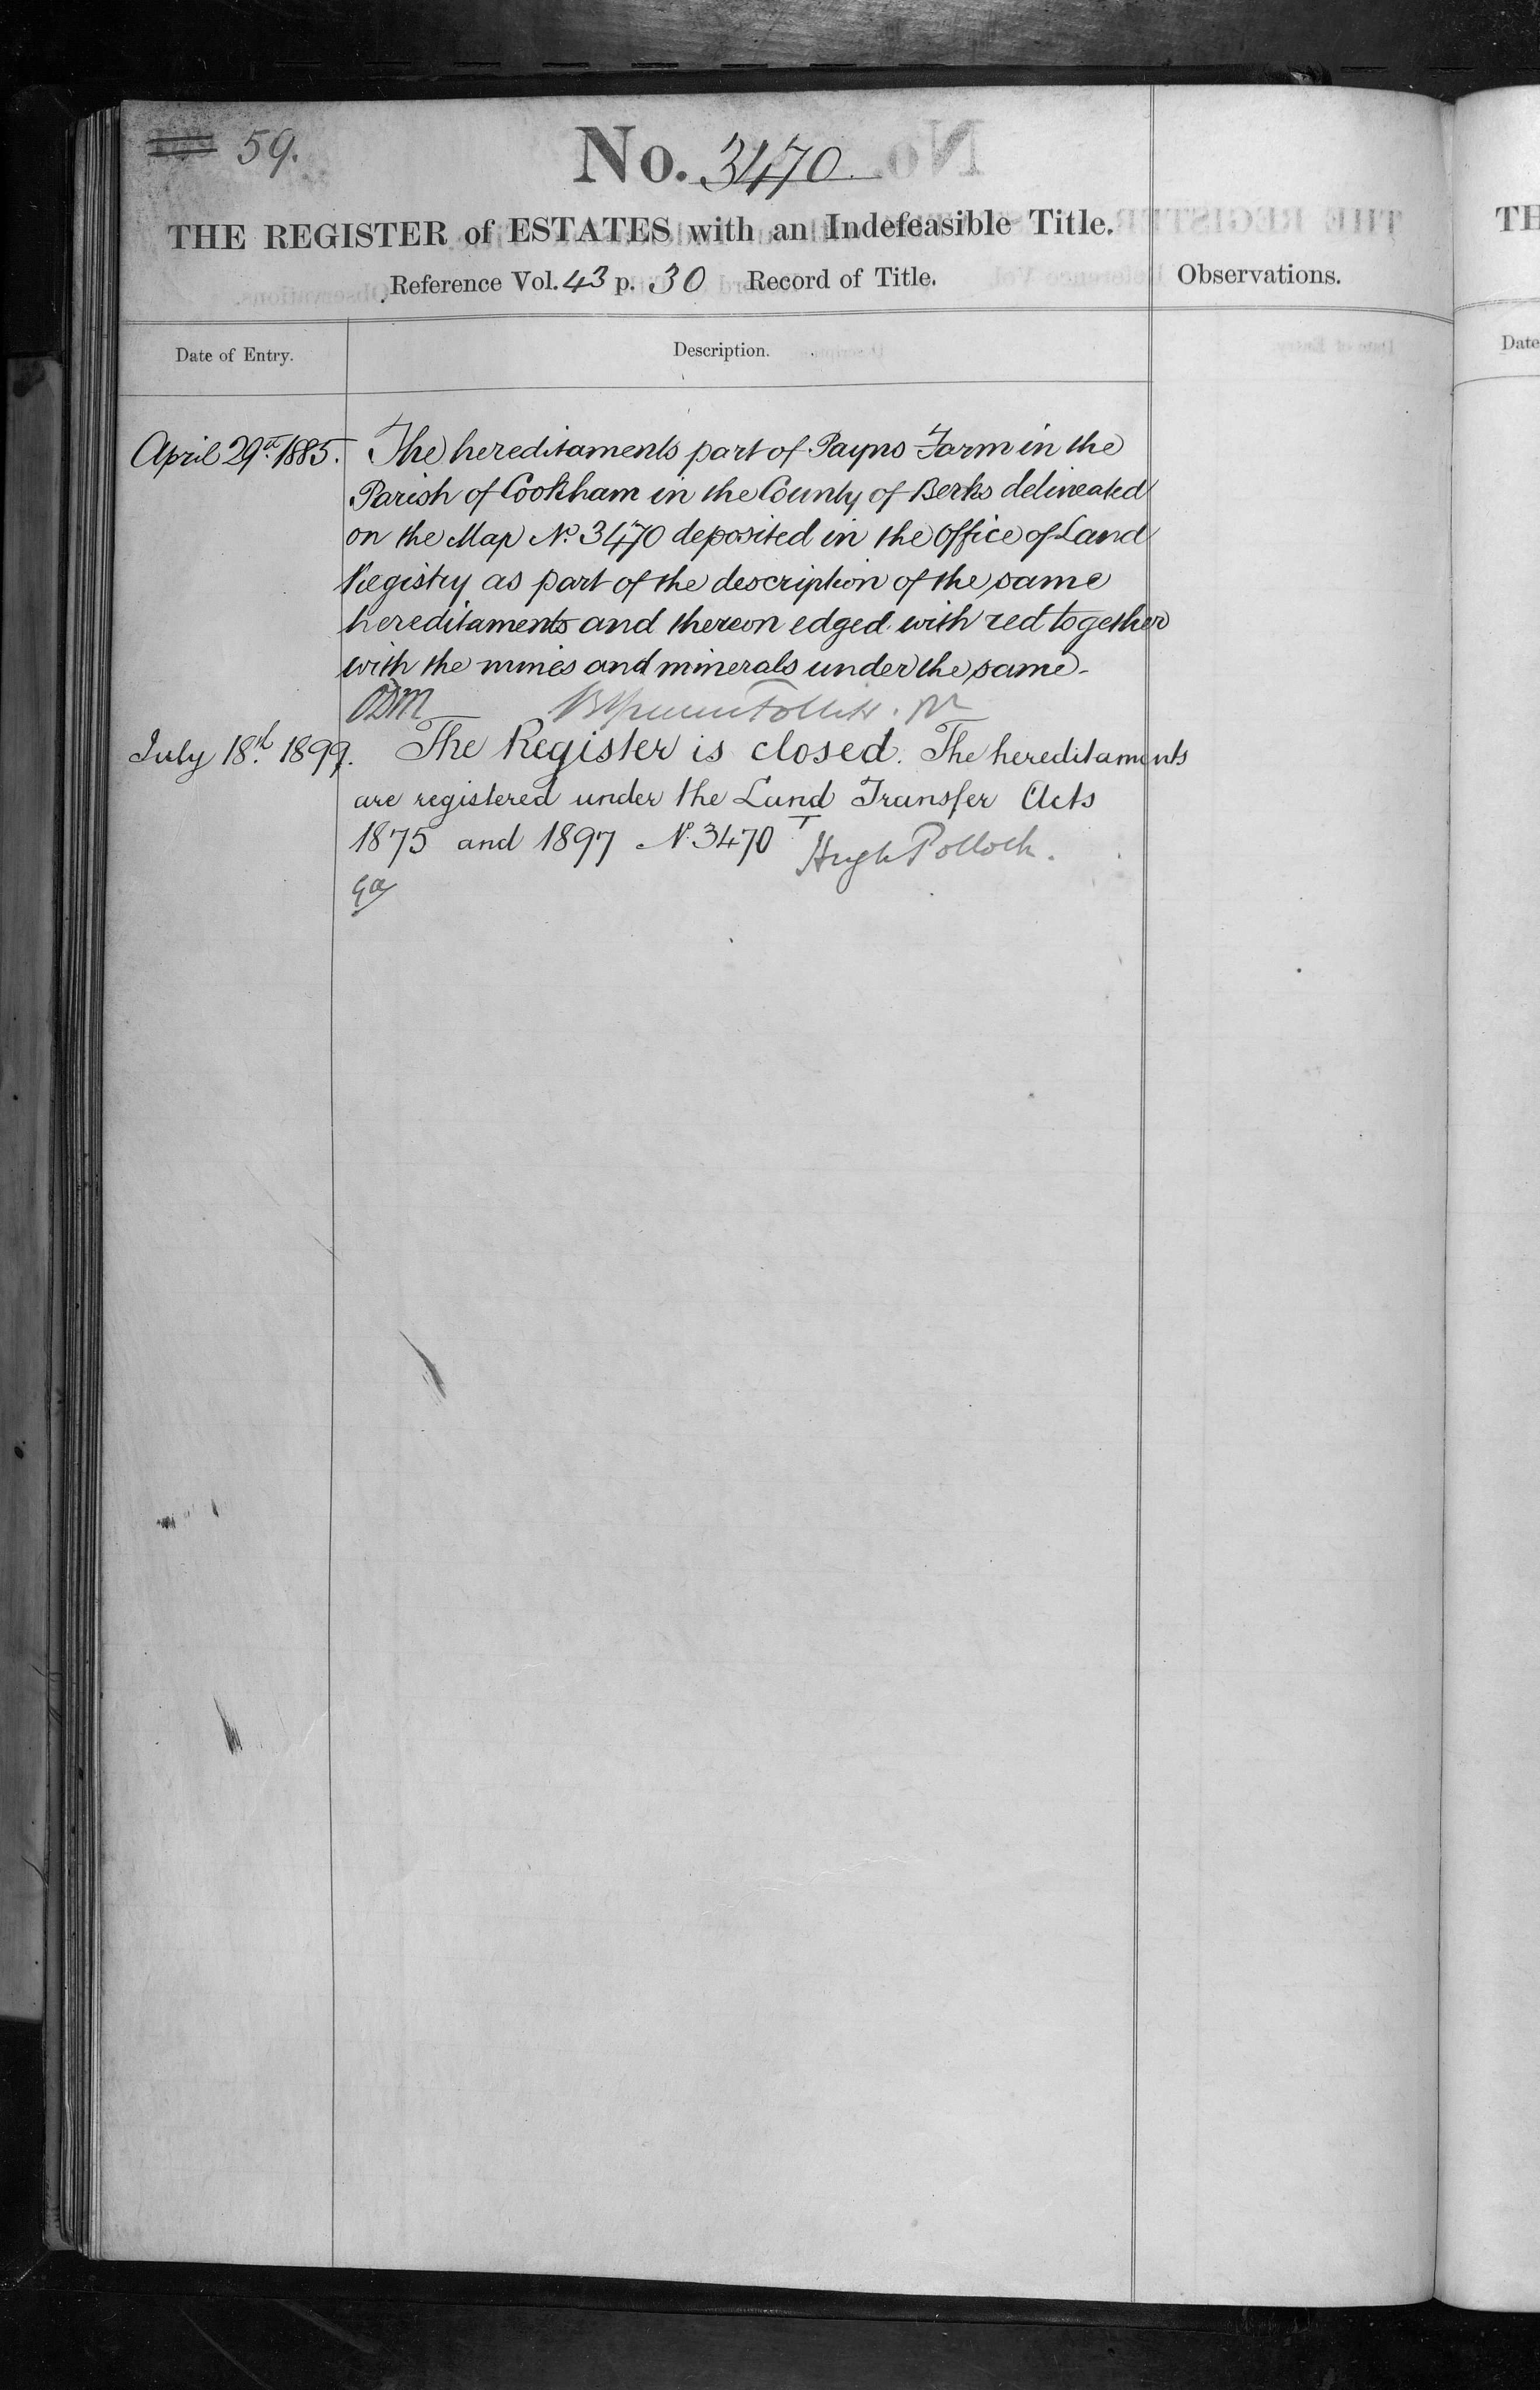 59.
No. 3470.
THE REGISTER of ESTATES with an Indefeasible Title.
Reference Vol. 43 p. 30 Record of Title.
Observations.
Date of Entry.
Description.
April 29th 1885.
The hereditaments part of Payns Farm in the
Parish of Cookham in the County of Berks delineated
on the Map No. 3470 deposited in the Office of Land
Registry as part of the description of the same
hereditaments and thereon edged with red together
with the mines and minerals under the same.
ODM
July 18th 1899.
The Register is closed. The hereditaments
are registered under the Land Transfer Acts
1875 and 1897 No. 3470
Hugh Pollock.
TH
Date